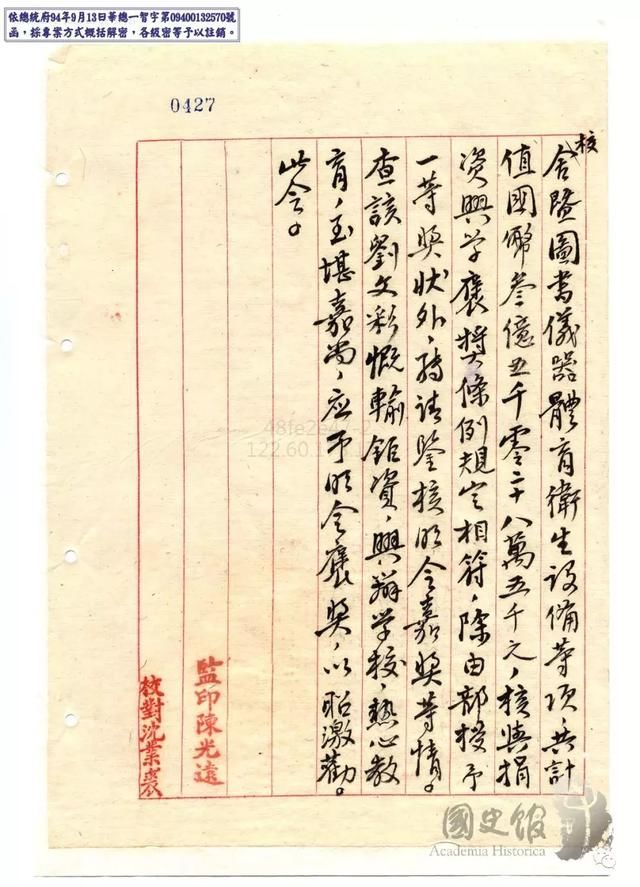 依總統府94年9月13日華總一智字第09400132570號
函，採專案方式概括解密，各級密等予以註銷。
0427
校
舍暨圖書儀器體育衛生設備等項，共計
值國幣叁億五千零二十八萬五千元，核與捐
資興学褒獎條例規定相符，除由部授予
一等奖狀外，請鉴核明令嘉奖等情。
查該劉文彩慨輸鉅資，興辦学校，熱心教
育，至堪嘉尚，应予明令褒奖，以昭激勸。
此令。
監印陳光遠
校對沈業
48fe2e47-2
122.60.1
國史館
Academia Historica